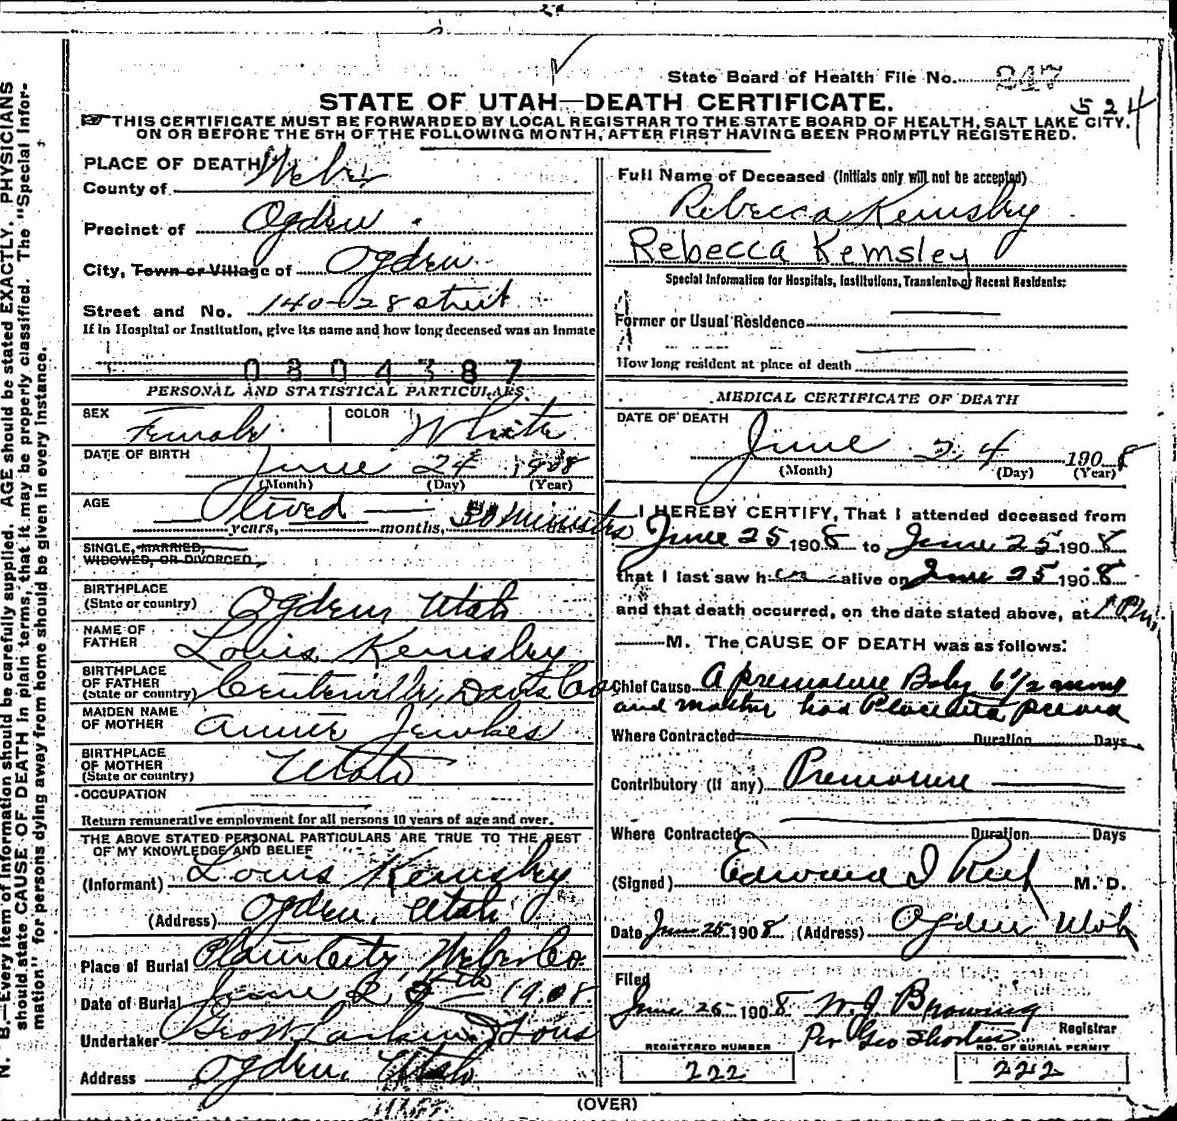 State Board of Health File No. 247
STATE OF UTAH—DEATH CERTIFICATE.
524
THIS CERTIFICATE MUST BE FORWARDED BY LOCAL REGISTRAR TO THE STATE BOARD OF HEALTH, SALT LAKE CITY,
ON OR BEFORE THE 5TH OF THE FOLLOWING MONTH, AFTER FIRST HAVING BEEN PROMPTLY REGISTERED.
PLACE OF DEATH
County of Weber
Precinct of Ogden
City, Town or Village of Ogden
Street and No. 140-28 street
If in Hospital or Institution, give its name and how long deceased was an inmate
0804387
PERSONAL AND STATISTICAL PARTICULARS.
SEX Female COLOR White
DATE OF BIRTH June 24 1908
(Month) (Day) (Year)
AGE lived 30 minutes
years, months, days
SINGLE, MARRIED,
WIDOWED, OR DIVORCED
BIRTHPLACE
(State or country) Ogden, Utah
NAME OF
FATHER Louis Kemsley
BIRTHPLACE
OF FATHER
(State or country) Centerville, Davis Co
MAIDEN NAME
OF MOTHER Annie Jewkes
BIRTHPLACE
OF MOTHER
(State or country) Utah
OCCUPATION
Return remunerative employment for all persons 10 years of age and over.
THE ABOVE STATED PERSONAL PARTICULARS ARE TRUE TO THE BEST
OF MY KNOWLEDGE AND BELIEF
(Informant) Louis Kemsley
(Address) Ogden, Utah
Place of Burial Plain City, Weber Co.
Date of Burial June 25th 1908
Undertaker Geo W Larkin & Sons
Address Ogden, Utah
Full Name of Deceased (Initials only will not be accepted)
Rebecca Kemsley
Rebecca Kemsley
Special Information for Hospitals, Institutions, Transients or Recent Residents:
Former or Usual Residence
How long resident at place of death
MEDICAL CERTIFICATE OF DEATH
DATE OF DEATH
June 24 1908
(Month) (Day) (Year)
I HEREBY CERTIFY, That I attended deceased from
June 25 1908 to June 25 1908
that I last saw her alive on June 25 1908
and that death occurred, on the date stated above, at 1 P.M.
M. The CAUSE OF DEATH was as follows:
Chief Cause A premature Baby 6½ mons
and mother had Placenta previa
Where Contracted Duration Days
Contributory (If any) Premature
Where Contracted Duration Days
(Signed) Edward I Rich M. D.
Date June 25 1908 (Address) Ogden Utah
Filed
June 26 1908 W. J. Browning
Registrar
Per Geo Shorten
REGISTERED NUMBER
222
NO. OF BURIAL PERMIT
222
(OVER)
N. B.—Every item of information should be carefully supplied. AGE should be stated EXACTLY. PHYSICIANS
should state CAUSE OF DEATH in plain terms, that it may be properly classified. The "Special Infor-
mation" for persons dying away from home should be given in every instance.